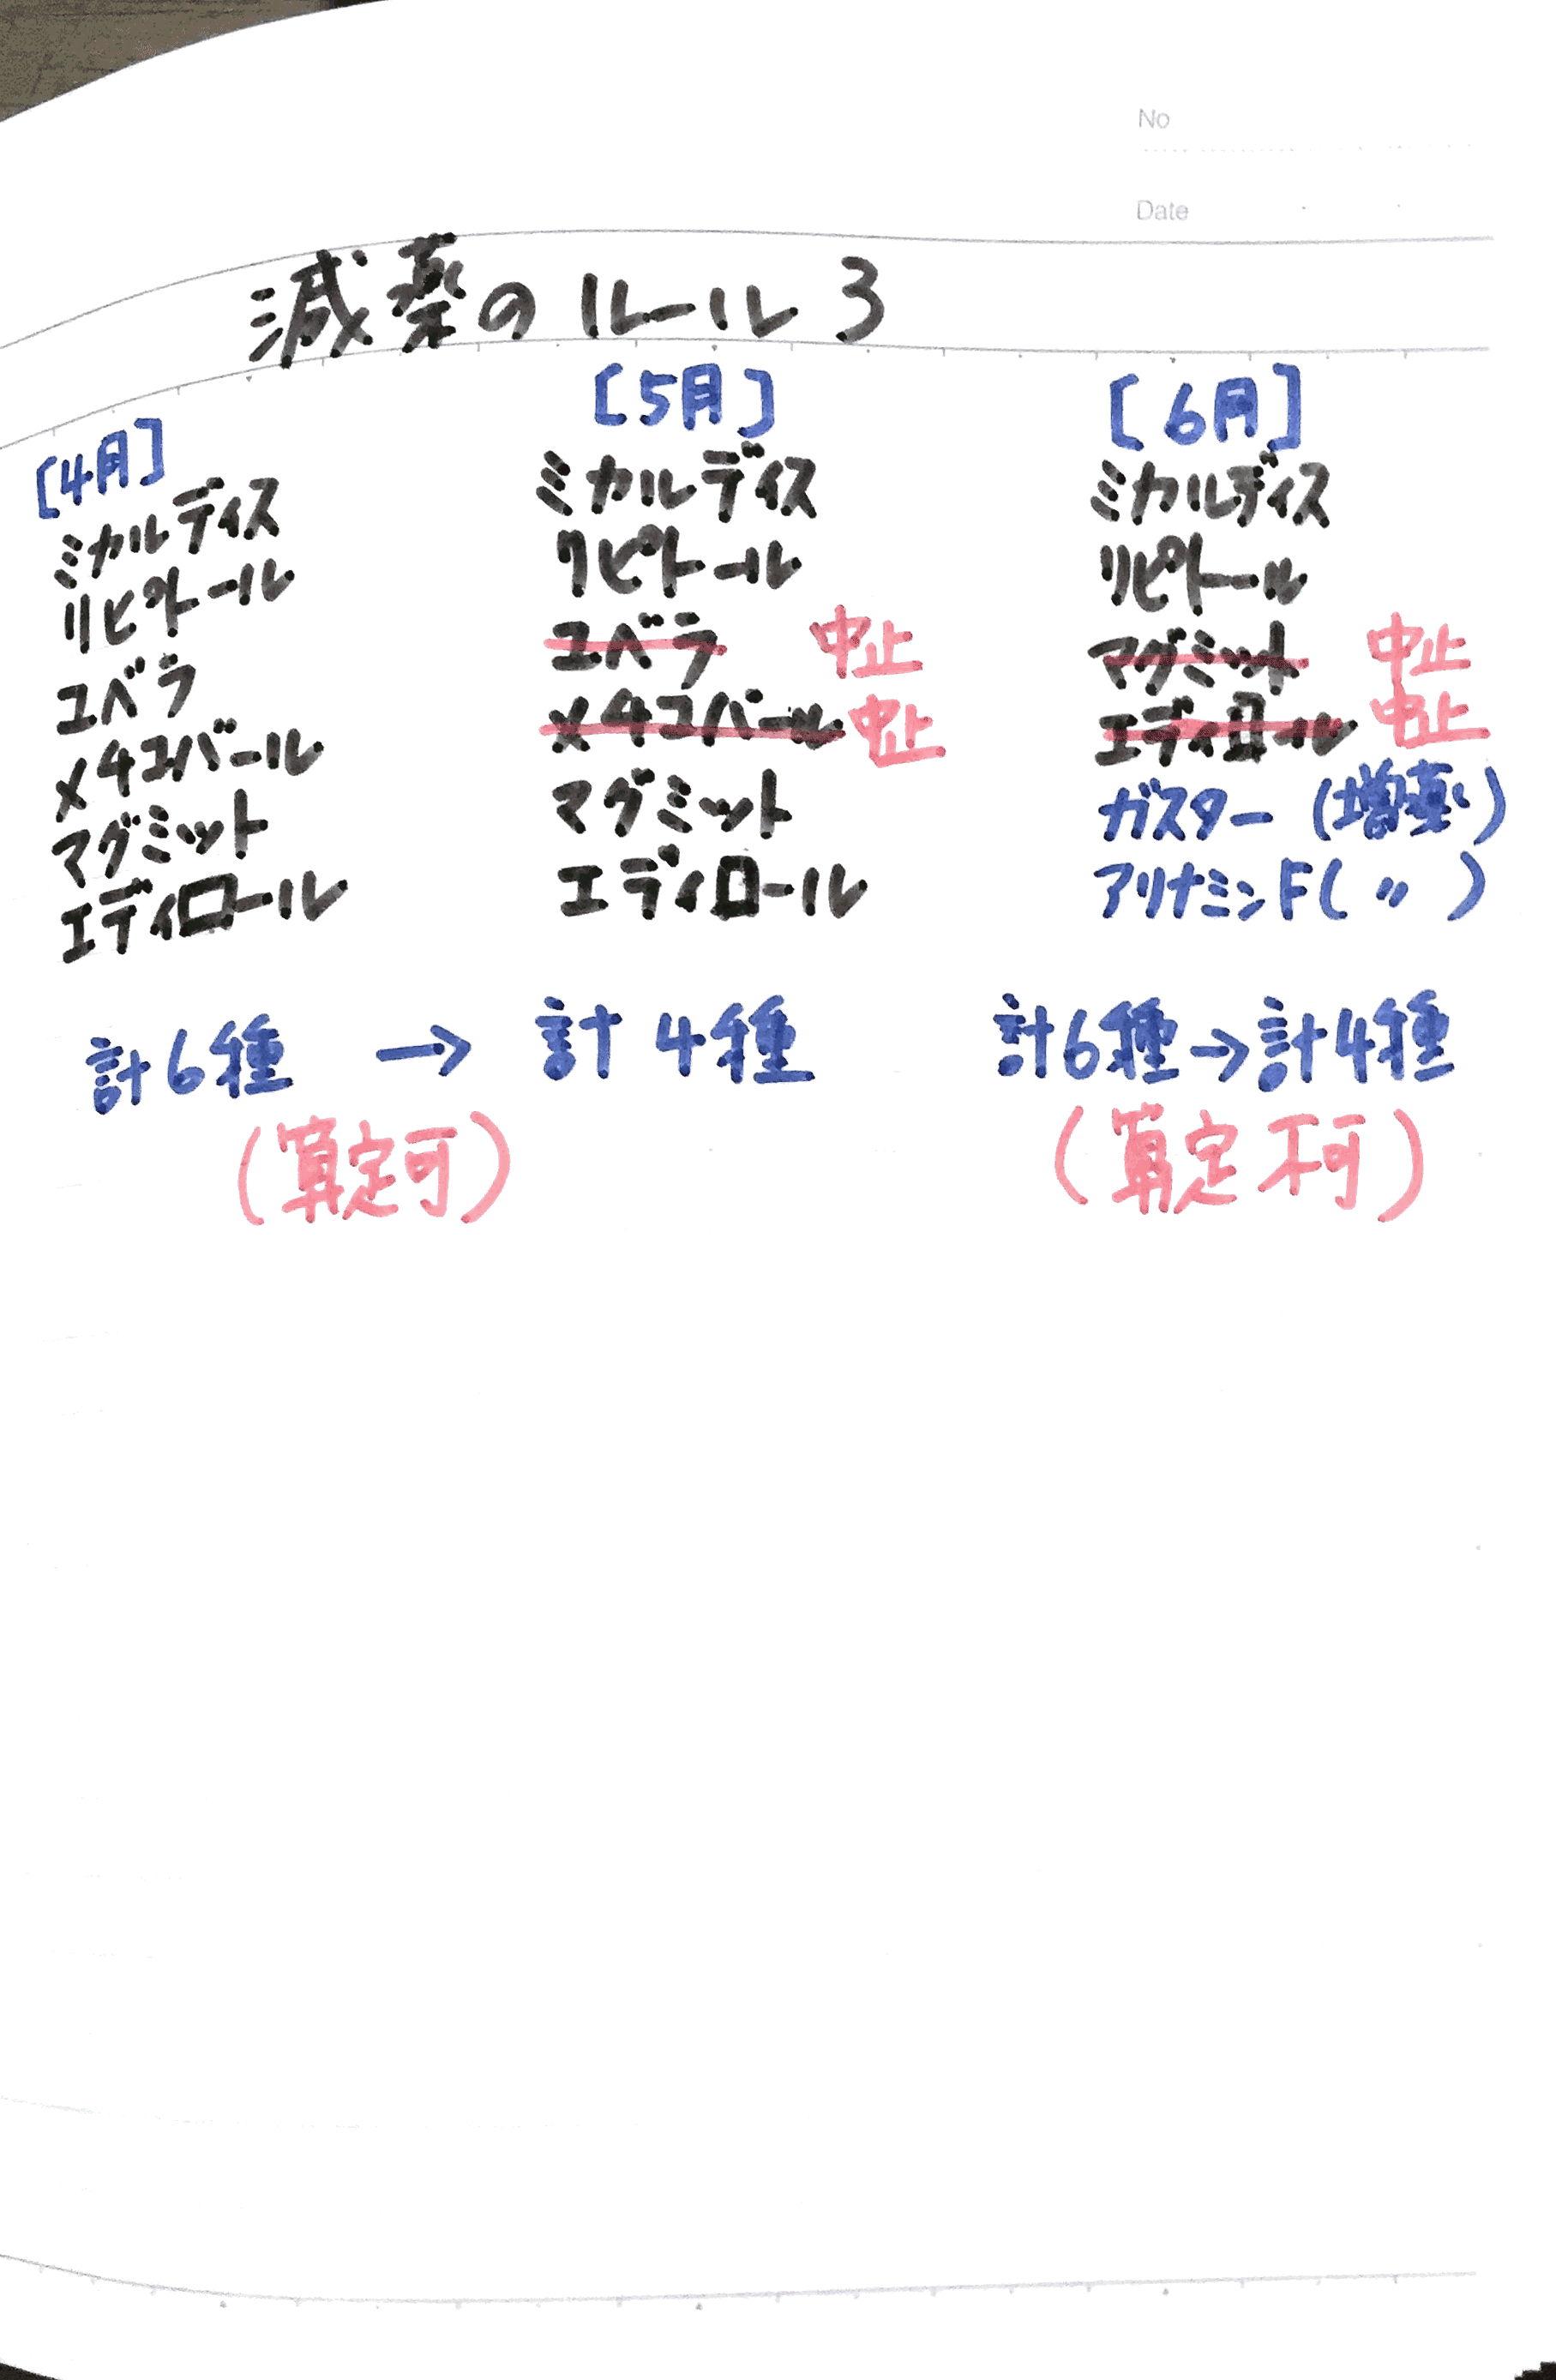 No
Date
減薬のルール3
[4月]
ミカルディス
リピトール
ユベラ
メチコバール
マグミット
エディロール
[5月]
ミカルディス
リピトール
ユベラ 中止
メチコバール 中止
マグミット
エディロール
[6月]
ミカルディス
リピトール
マグミット 中止
エディロール 中止
ガスター (増薬)
アリナミンF( 〃 )
計6種 → 計4種
(算定可)
計6種→計4種
(算定不可)